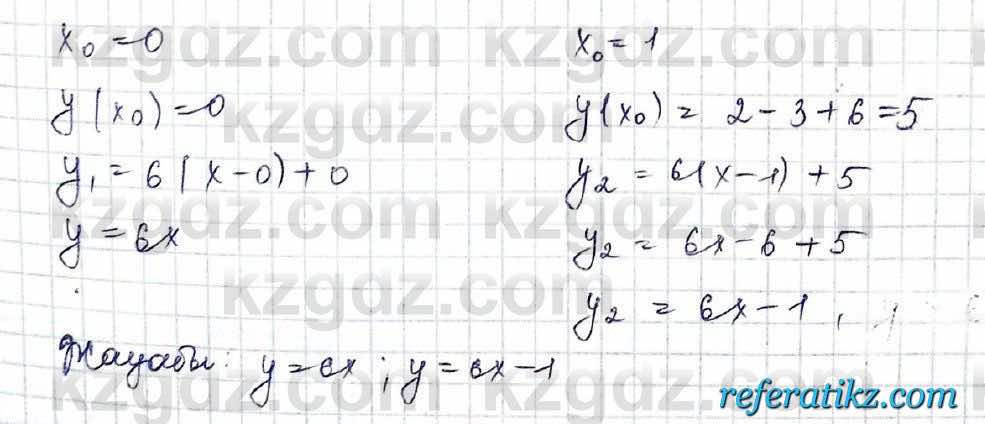 x₀ = 0
y(x₀) = 0
y₁ = 6(x-0)+0
y = 6x
x₀ = 1
y(x₀) = 2-3+6=5
y₂ = 6(x-1)+5
y₂ = 6x-6+5
y₂ = 6x-1,
Жауабы: y=6x; y=6x-1
kzgdz.com kzgdz.com
kzgdz.com kzgdz.com
kzgdz.com kzgdz.com
kzgdz.com kzgdz.com
kzgdz.com kzgdz.com
referatikz.com